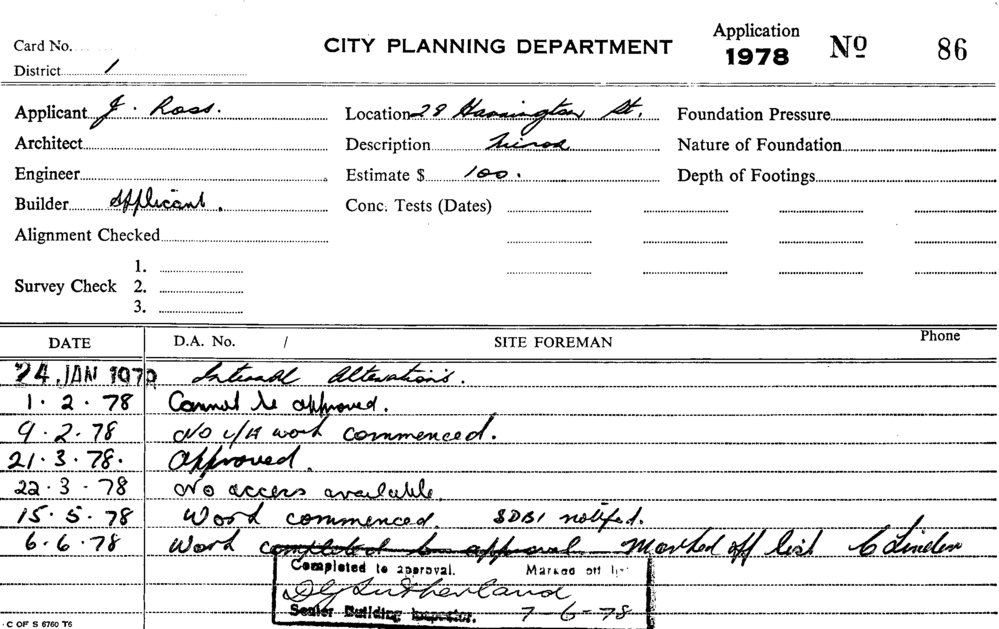 Card No.
CITY PLANNING DEPARTMENT
Application
1978 No 86
District 1
Applicant J. Ross.
Location 29 Harrington St.
Foundation Pressure
Architect
Description Minor
Nature of Foundation
Engineer
Estimate $ 100.
Depth of Footings
Builder Applicant.
Conc. Tests (Dates)
Alignment Checked
Survey Check
1.
2.
3.
DATE D.A. No. / SITE FOREMAN Phone
24 JAN 1978 Internal Alterations.
1.2.78 Cannot be approved.
9.2.78 No work commenced.
21.3.78. Approved.
22.3.78 No access available.
15.5.78 Work commenced. SDBI notified.
6.6.78 Work completed to approval Marked off list C Linden
Completed to approval. Marked off list
D G Sutherland
Senior Building Inspector. 7-6-78
C OF S 6760 T6